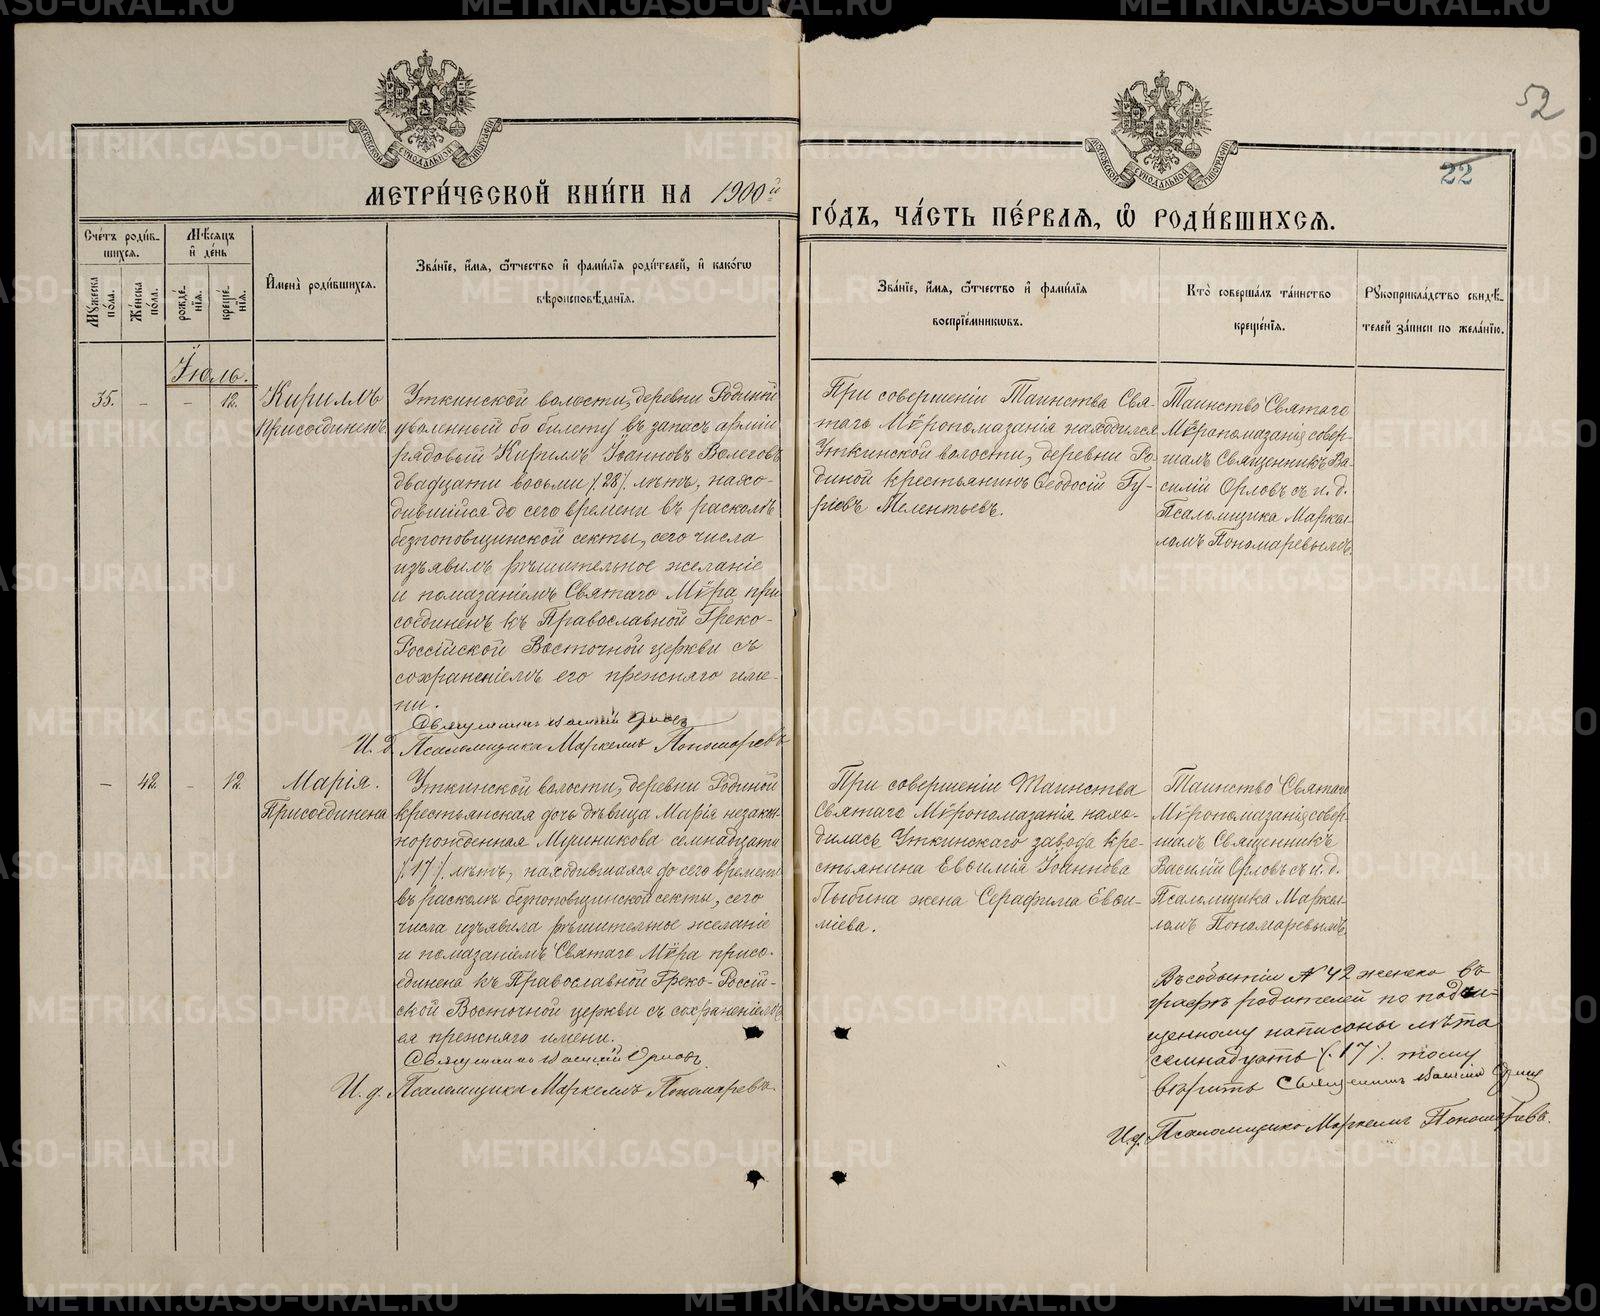 52
22
МЕТРИ́ЧЕСКОЙ КНИ́ГИ НА 1900й
ГО́ДЪ, ЧА́СТЬ ПЕ́РВАЯ, Ѡ РОДИ́ВШИХСЯ.
Сче́тъ роди́в-
шихся.
Мѣ́сяцъ
и де́нь
Му́жеска по́ла.
Же́нска по́ла.
рожде́-
нія.
креще́-
нія.
Имена̀ роди́вшихся.
Зва́ніе, и́мя, ѻ́тчество и фами́лія роди́телей, и како́гѡ
вѣроисповѣ́данія.
Зва́ніе, и́мя, ѻ́тчество и фами́лія
воспріе́мникѡвъ.
Кто̀ соверша́лъ та́инство
креще́нія.
Рукоприкла́дство свидѣ́-
телей за́писи по жела́нію.
Іюль.
35. - - 12.
Кириллъ
присоединенъ
Уткинской волости, деревни Родиной
уволенный по билету въ запасъ арміи
рядовый Кириллъ Іоанновъ Волеговъ
двадцати восьми /.28/. лѣтъ, нахо-
дившійся до сего времени въ расколѣ
безпоповщинской секты, сего числа
изъявилъ рѣшительное желаніе
и помазаніемъ Святаго Мѵра при
соединенъ къ Православной Греко-
Россійской Восточной церкви съ
сохраненіемъ его прежняго име-
ни.
Священникъ Василій Орловъ
И. д. Псаломщика Маркеллъ Пономаревъ
При совершеніи Таинства Свя-
таго Мѵропомазанія находился
Уткинской волости, деревни Ро-
диной крестьянинъ Ѳеодосій Гу-
ріевъ Мелентьевъ.
Таинство Святаго
Мѵропомазанія совер-
шалъ Священникъ Ва-
силій Орловъ съ и. д.
Псаломщика Маркел-
ломъ Пономаревымъ.
- 42. - 12.
Марія.
Присоединена
Уткинской волости, деревни Родиной
крестьянская дочь дѣвица Марія незакон
норожденная Мушникова семнадцати
/.17/. лѣтъ, находившаяся до сего времени
въ расколѣ безпоповщинской секты, сего
числа изъявила рѣшительное желаніе
и помазаніемъ Святаго Мѵра присо-
единена къ Православной Греко-Россій-
ской Восточной церкви съ сохраненіемъ
ея прежняго имени.
Священникъ Василій Орловъ
И. д. Псаломщика Маркеллъ Пономаревъ.
При совершеніи Таинства
Святаго Мѵропомазанія нахо-
дилась Уткинскаго завода кре-
стьянина Евѳимія Іоаннова
Пыбина жена Серафима Евѳи-
міева.
Таинство Святаго
Мѵропомазанія совер-
шалъ Священникъ
Василій Орловъ съ и. д.
Псаломщика Маркел-
ломъ Пономаревымъ.
Въ событіи № 42 женска въ
графѣ родителей по подчи-
щенному написаны лѣта
семнадцать /.17/. тому
вѣрить Священникъ Василій Орловъ
И. д. Псаломщика Маркеллъ Пономаревъ.
METRIKI.GASO-URAL.RU